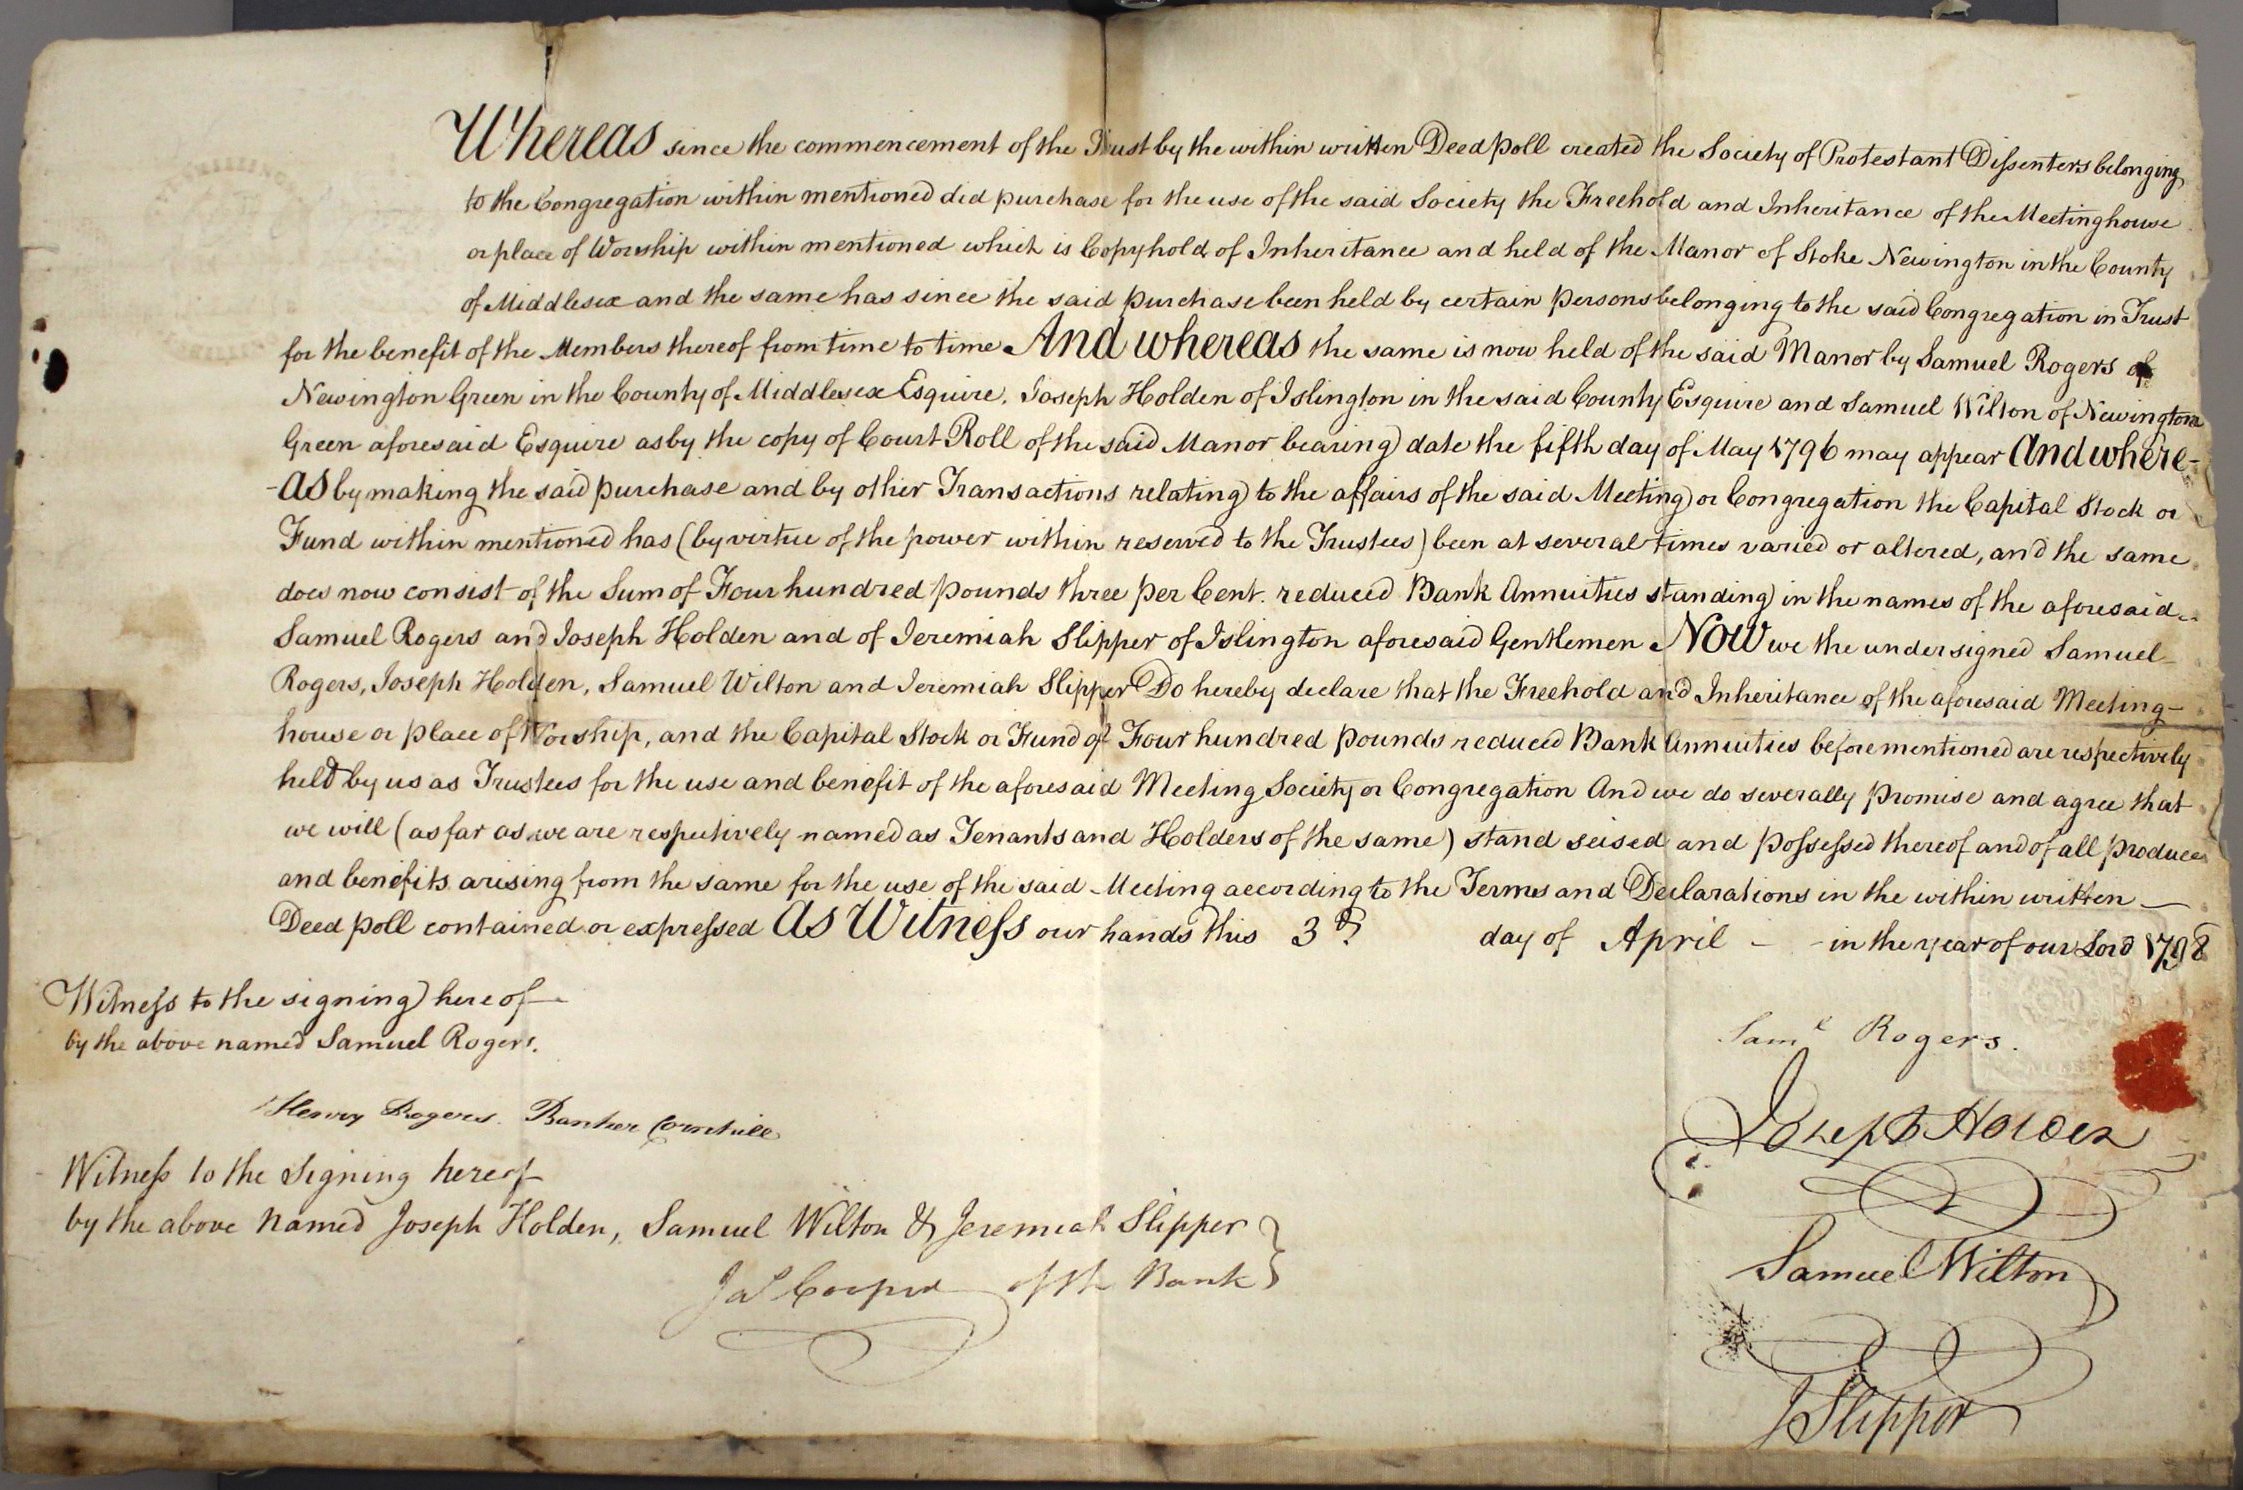 Whereas since the commencement of the Trust by the within written Deed poll created the Society of Protestant Dissenters belonging
to the Congregation within mentioned did purchase for the use of the said Society the Freehold and Inheritance of the Meetinghouse
or place of Worship within mentioned which is Copyhold of Inheritance and held of the Manor of Stoke Newington in the County
of Middlesex and the same has since the said purchase been held by certain persons belonging to the said Congregation in Trust
for the benefit of the Members thereof from time to time And whereas the same is now held of the said Manor by Samuel Rogers of
Newington Green in the County of Middlesex Esquire, Joseph Holden of Islington in the said County Esquire and Samuel Wilton of Newington
Green aforesaid Esquire as by the copy of Court Roll of the said Manor bearing date the fifth day of May 1796 may appear And where-
-as by making the said purchase and by other Transactions relating to the affairs of the said Meeting or Congregation the Capital Stock or
Fund within mentioned has (by virtue of the power within reserved to the Trustees) been at several times varied or altered, and the same
does now consist of the Sum of Four hundred pounds three per Cent. reduced Bank Annuities standing in the names of the aforesaid
Samuel Rogers and Joseph Holden and of Jeremiah Slipper of Islington aforesaid Gentlemen Now we the undersigned Samuel
Rogers, Joseph Holden, Samuel Wilton and Jeremiah Slipper Do hereby declare that the Freehold and Inheritance of the aforesaid Meeting-
house or place of Worship, and the Capital Stock or Fund of Four hundred pounds reduced Bank Annuities before mentioned are respectively
held by us as Trustees for the use and benefit of the aforesaid Meeting Society or Congregation And we do severally promise and agree that
we will (as far as we are respectively named as Tenants and Holders of the same) stand seised and possessed thereof and of all produce
and benefits arising from the same for the use of the said Meeting according to the Terms and Declarations in the within written
Deed poll contained or expressed As Witness our hands this 3d. day of April - - in the year of our Lord 1798
Witness to the signing hereof
by the above named Samuel Rogers.
Saml Rogers.
Henry Rogers. Banker Cornhill
Joseph Holden
Witness to the Signing hereof
by the above named Joseph Holden, Samuel Wilton & Jeremiah Slipper
Jas Cooper of the Bank
Samuel Wilton
J Slipper